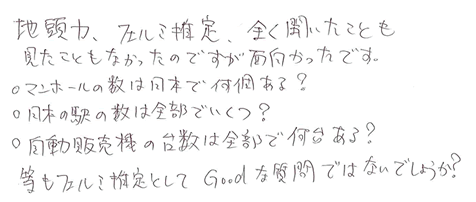 地頭力、フェルミ推定、全く聞いたことも
見たこともなかったのですが面白かったです。
○マンホールの数は日本で何個ある?
○日本の駅の数は全部でいくつ?
○自動販売機の台数は全部で何台ある?
等もフェルミ推定として Goodな質問ではないでしょうか?